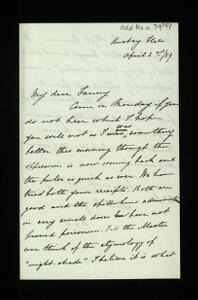 Add Ms a 79⁸⁹
April 2nd /89
My dear Fanny
Come on Monday if you
do not hear which I hope
you will not as I was something
better this morning though the
oppression is now coming back and
the pulse as quick as ever. We have
tried both your receipts. Both are
good and the administered
in very small doses have not
proved poisonous. Did the Master
ever think of the etymology of
"night-shade" I believe it is what